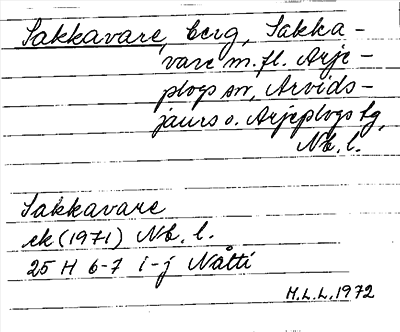 Sakkavare, berg, Sakka-
vare m.fl. Arje-
plogs sn, Arvids-
jaurs o. Arjeplogs tg,
Nb. l.
Sakkavare
ek (1971) Nb. l.
25 H 6-7 i-j Nåtti
H.L.L. 1972